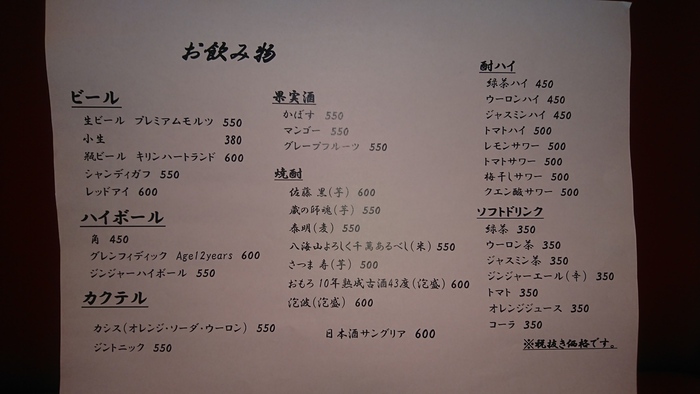 お飲み物
ビール
生ビール プレミアムモルツ 550
小生 380
瓶ビール キリンハートランド 600
シャンディガフ 550
レッドアイ 600
ハイボール
角 450
グレンフィディック Age12years 600
ジンジャーハイボール 550
カクテル
カシス(オレンジ・ソーダ・ウーロン) 550
ジントニック 550
果実酒
かぼす 550
マンゴー 550
グレープフルーツ 550
焼酎
佐藤 黒(芋) 600
蔵の師魂(芋) 550
泰明(麦) 550
八海山よろしく千萬あるべし(米) 550
さつま 寿(芋) 500
おもろ10年熟成古酒43度(泡盛) 600
泡波(泡盛) 600
日本酒サングリア 600
酎ハイ
緑茶ハイ 450
ウーロンハイ 450
ジャスミンハイ 450
トマトハイ 500
レモンサワー 500
トマトサワー 500
梅干しサワー 500
クエン酸サワー 500
ソフトドリンク
緑茶 350
ウーロン茶 350
ジャスミン茶 350
ジンジャーエール(辛) 350
トマト 350
オレンジジュース 350
コーラ 350
※税抜き価格です。